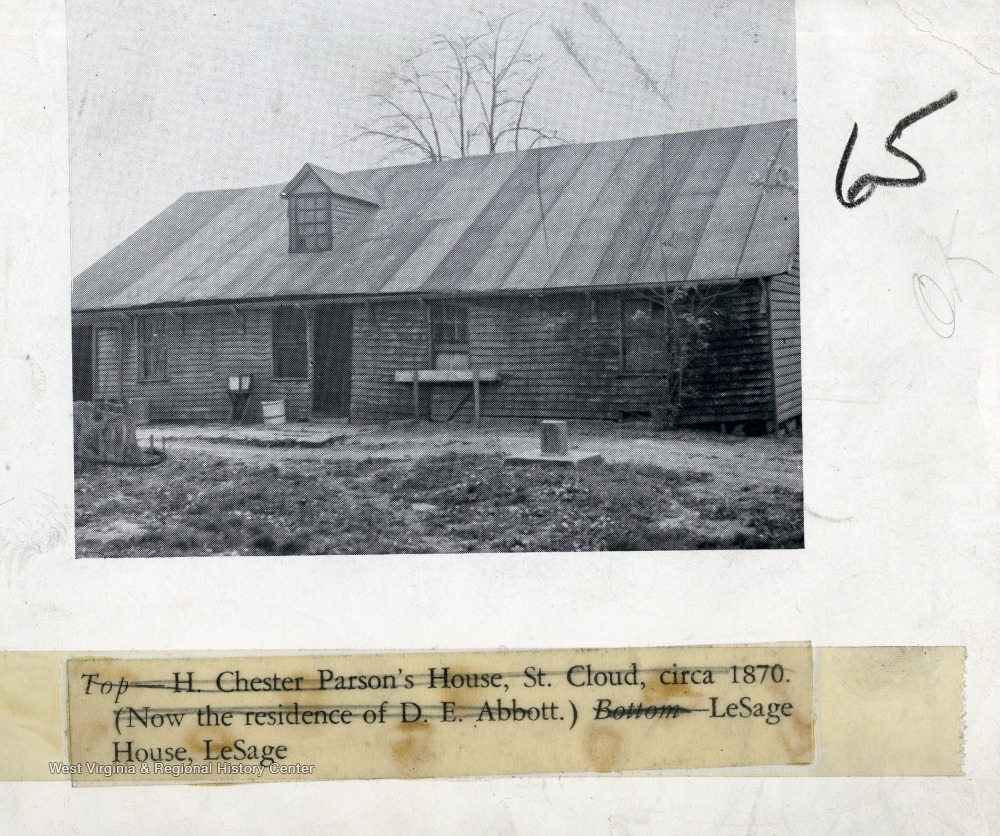 65
Top—H. Chester Parson's House, St. Cloud, circa 1870.
(Now the residence of D. E. Abbott.) Bottom—LeSage
House, LeSage
West Virginia & Regional History Center